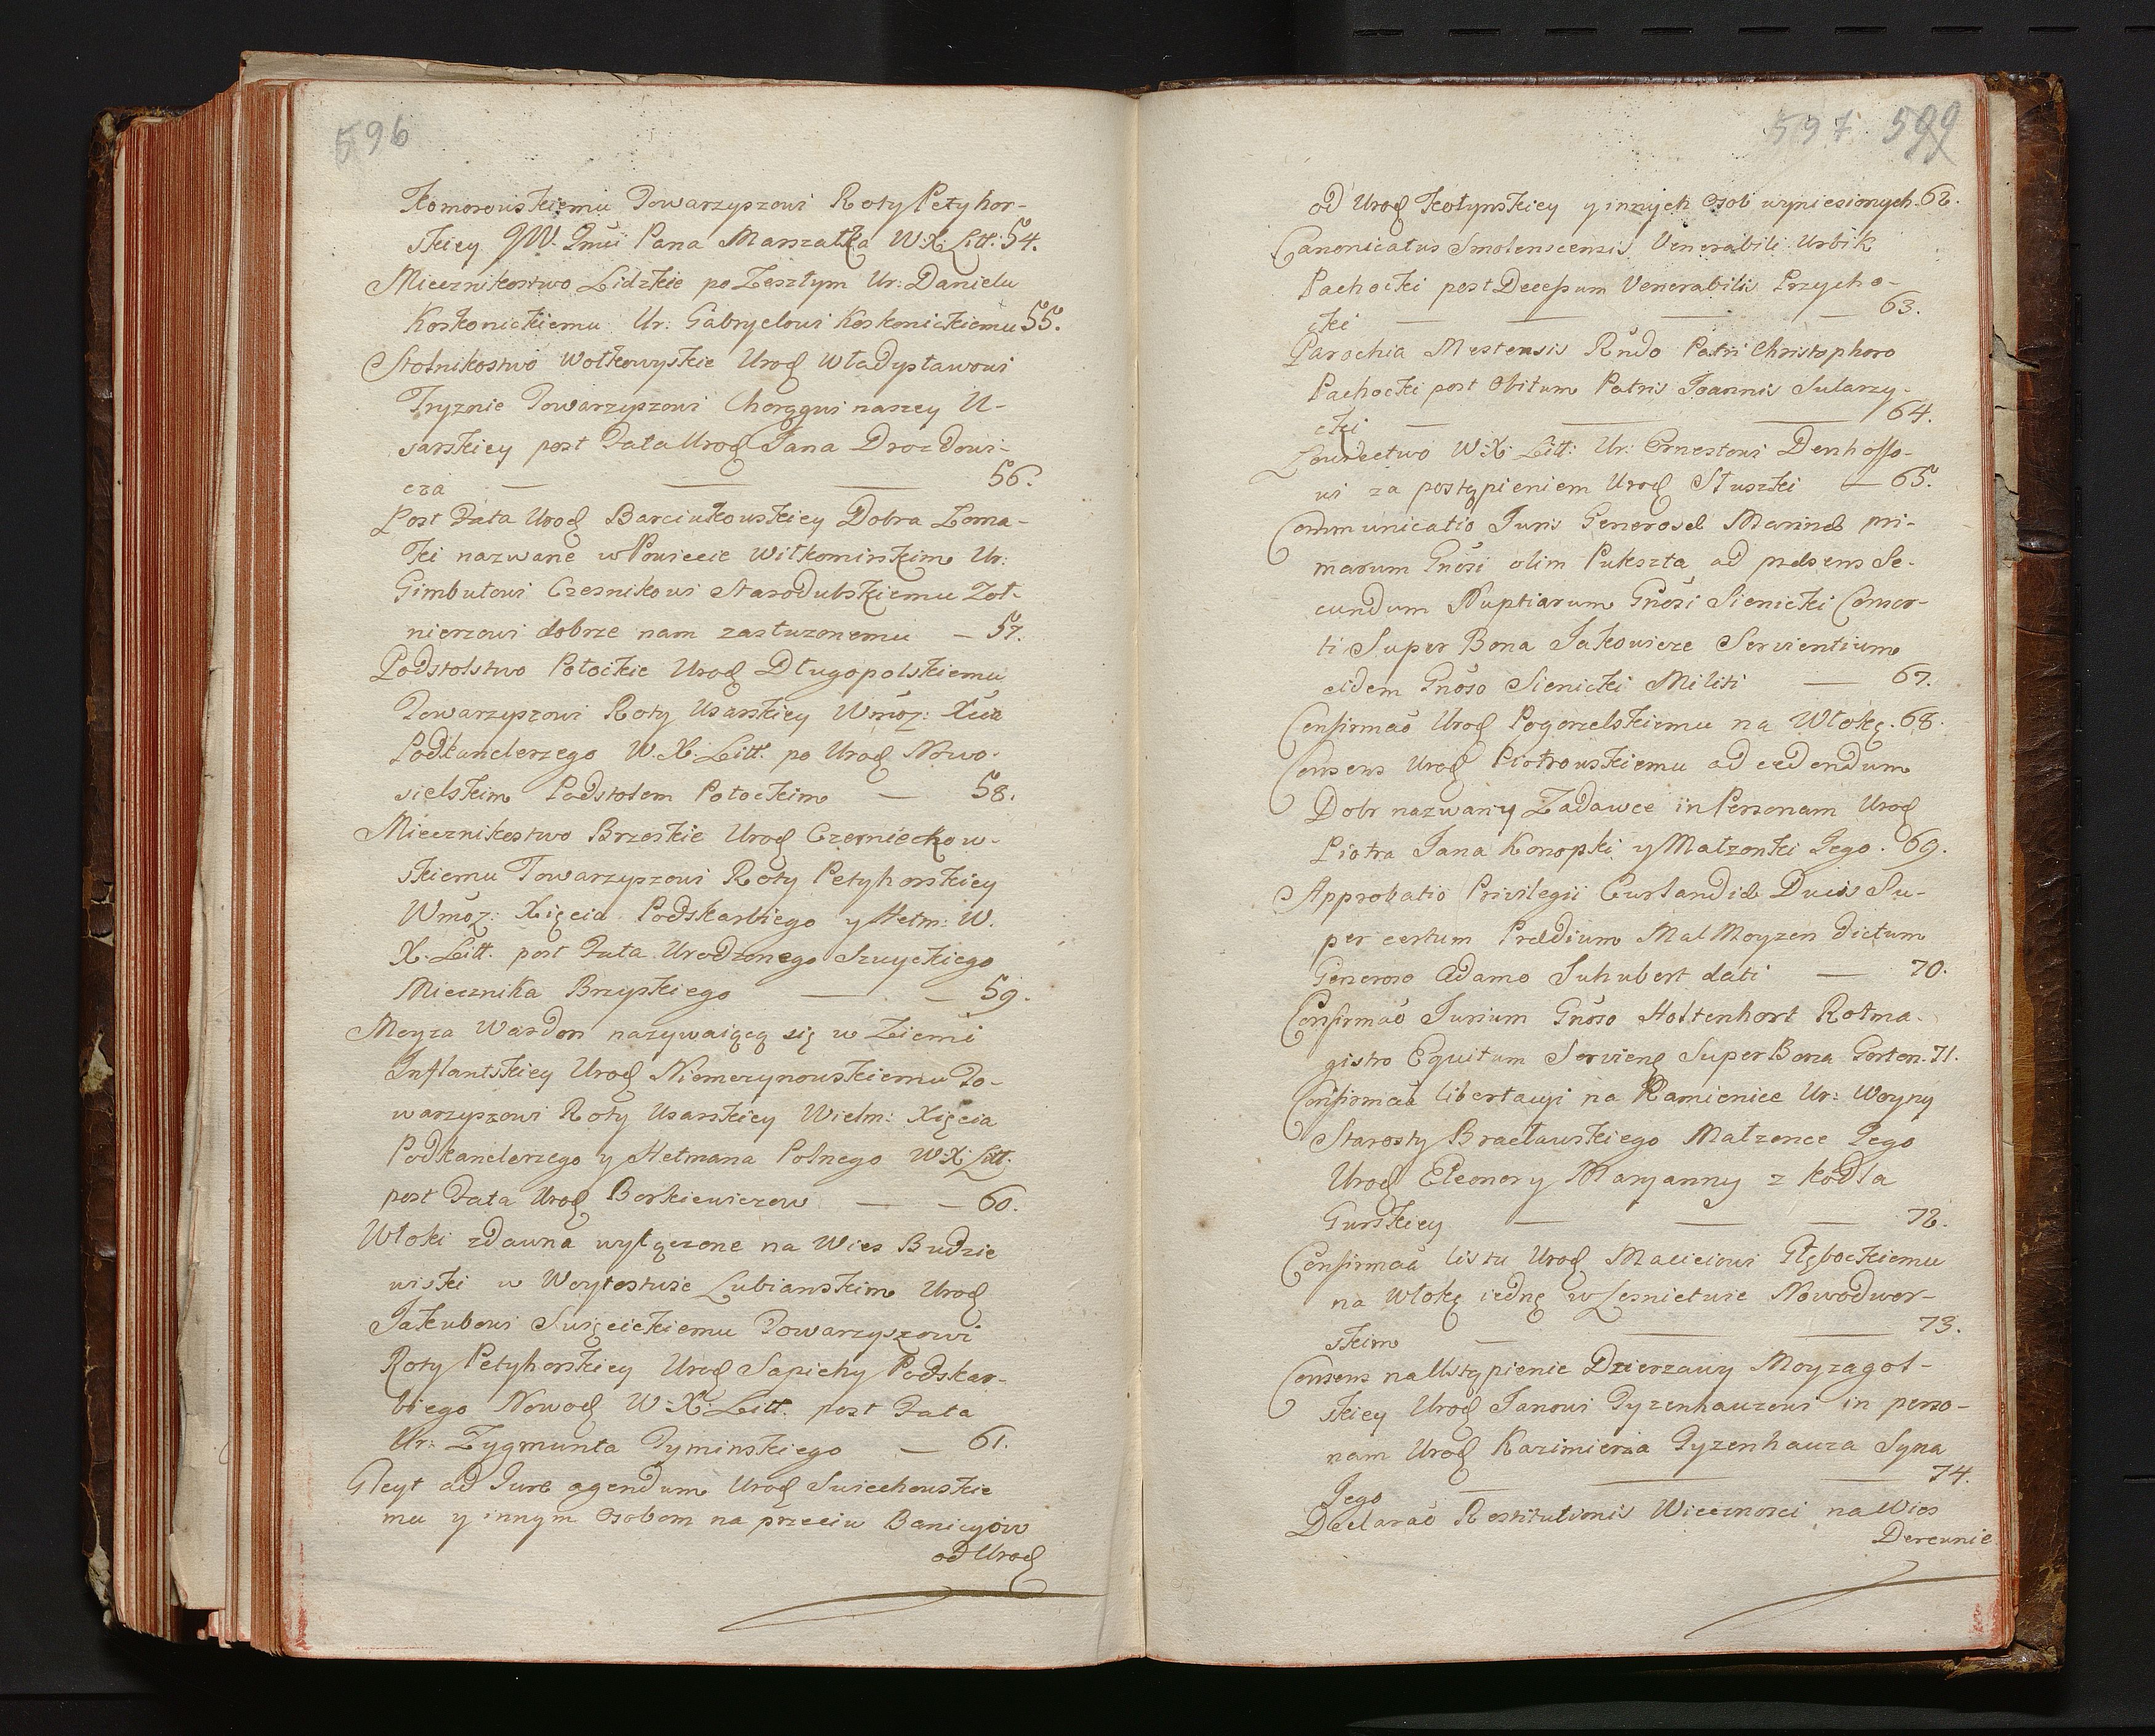 596
Komorowskiemu Towarzyszowi Roty Petyhor-
skiey JW. Jmći Pana Marszałka W: X: Litt: 54.
Miecznikostwo Lidzkie po Zeszłym Ur: Danielu
Koskonickiemu Ur: Gabryelowi Koskonickiemu 55.
Stolnikostwo Wołkowyskie Urod Władysławowi
Tryznie Towarzyszowi Chorągwi naszey U-
sarskiey post Fata Urod Jana Drozdowi-
cza 56.
Post Fata Urod Barciukowskiey Dobra Loma-
ki nazwane w Powiecie Wiłkomirskim Ur:
Gimbutowi Czesnikowi Starodubskiemu Zoł-
nierzowi dobrze nam zasłuzonemu — 57.
Podstolstwo Połockie Urod Długopolskiemu
Towarzyszowi Roty Usarskiey Wmoz: Xcia
Podkanclerzego W. X. Litt. po Urod Nowo-
sielskim Podstolem Połockim — 58.
Miecznikostwo Brzeskie Urod Czernieckow-
skiemu Towarzyszowi Roty Petyhorskiey
Wmoz: Xięcia Podskarbiego y Hetm: W.
X. Litt. post Fata Urodzonego Szuyckiego
Miecznika Brzyskiego — 59.
Moyza Wardon nazywaiącą się w Ziemi
Inflantskiey Urod Niemerynowskiemu To-
warzyszowi Roty Usarskiey Wielm: Xięcia
Podkanclerzego y Hetmana Polnego W: X: Litt.
post Fata Urod Borkiewiczow — 60.
Włoki zdawna wyłączone na Wies Budzie
wiski w Woytostwie Lubianskim Urod
Jakubowi Swięcickiemu Towarzyszowi
Roty Petyhorskiey Urod Sapiehy Podskar-
biego Nowod W: X: Litt. post Fata
Ur: Zygmunta Tyminskiego — 61.
Gleyt ad Jure agendum Urod Swiechowskie
mu y innym Osobom na przeciw Banicyów
od Urod
597. 599
od Urod Kołynskiey y innych Osob wyniesionych. 62.
Canonicatus Smolenscensis Venerabili Urbik
Pachocki post Decessum Venerabilis Przycho-
cki 63.
Parochia Mestensis Rndo Patri Christophoro
Pachocki post Obitum Patris Joannis Sularzy-
cki 64.
Łowiectwo W: X: Litt: Ur: Ernestowi Denhoffo-
wi za postąpieniem Urod Słuszki — 65.
Communicatio Juris Generosæ Marinæ pri-
marum Gnosi olim Pukszta ad præsens Se-
cundum Nuptiarum Gnosi Sienicki Consor-
ti Super Bona Jakowicze Servientium
eidem Gnoso Sienicki Militi — 67.
Confirmaõ Urod Pogorzelskiemu na Włokę. 68.
Consens Urod Piotrowskiemu ad cedendum
Dobr nazwany Zadawce in Personam Urod
Piotra Jana Konopki y Małzonki Jego. 69.
Approbatio Privilegii Curlandiæ Ducis Su-
per certum Prædium Mal Moyzen dictum
Generoso Adamo Suhubert dati — 70.
Confirmaõ Jurium Gnoso Holtenhort Rotma-
gistro Equitum Servieng Super Bona Gorten. 71.
Confirmaã libertacyi na Kamienice Ur: Woyny
Starosty Bracławskiego Małzonce Jego
Urod Eleonory Maryanny z Kodla
Gurskiey — 72.
Confirmaã listu Urod Macieiowi Głębockiemu
na Włokę iednę w Lesnictwie Nowodwor-
skim 73.
Consens na Ustąpienie Dzierzawy Moyzagol-
skiey Urod Janowi Tyzenhauzowi in perso-
nam Urod Kazimierza Tyzenhauza Syna
Jego 74.
Declaraõ Restitutionis Wiecznosci na Wies
Dercunie